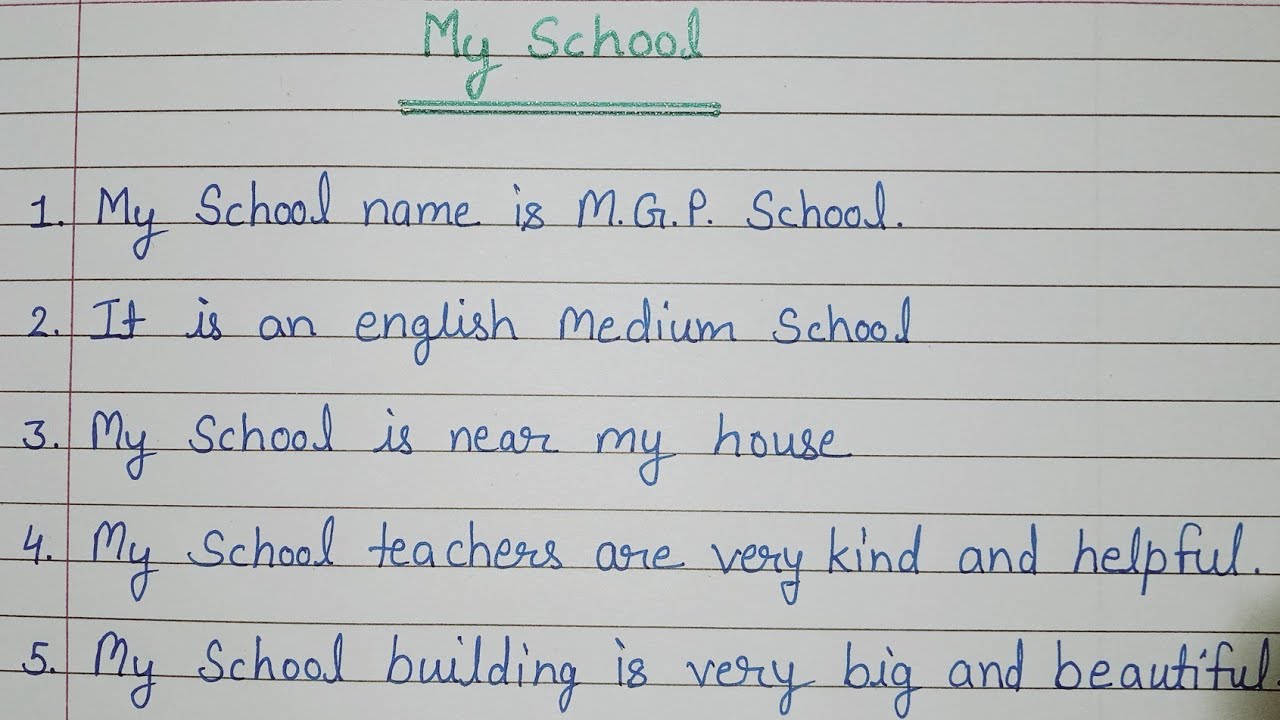 My School
1. My School name is M.G.P. School.
2. It is an english medium School
3. My School is near my house
4. My School teachers are very kind and helpful.
5. My School building is very big and beautiful.